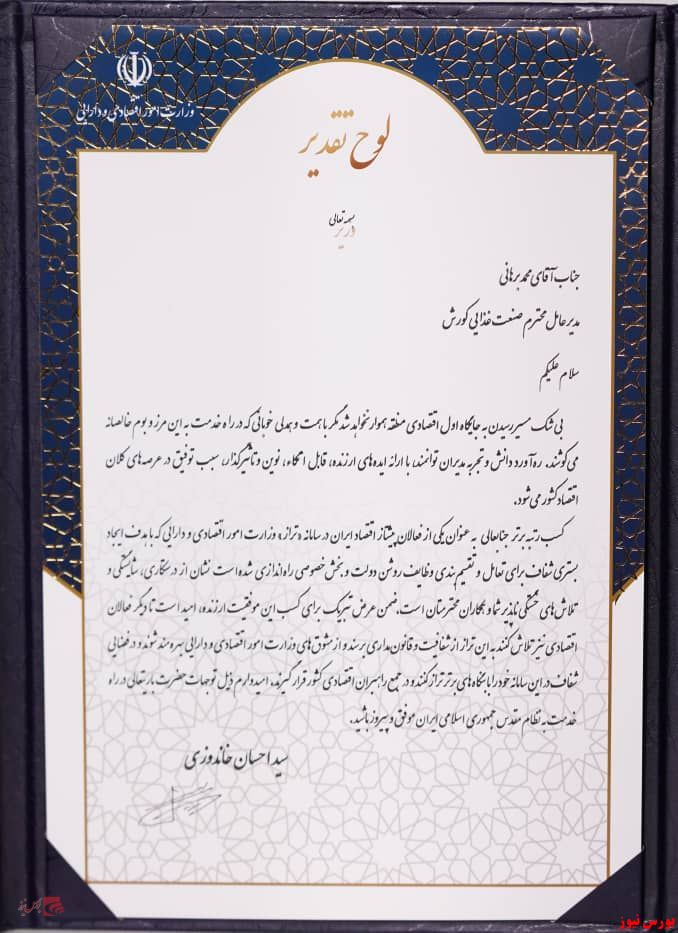 وزارت امور اقتصادی و دارایی
لوح تقدیر
بسمه تعالی
جناب آقای محمد برهانی
مدیرعامل محترم صنعت غذایی کورش
سلام علیکم
بی شک مسیر رسیدن به جایگاه اول اقتصادی منطقه هموار نخواهد شد مگر با همت و همدلی خوبانی که در راه خدمت به این مرز و بوم خالصانه
می کوشند. ره آورد دانش و تجربه مدیران توانمند، با ارائه ایده های ارزنده، قابل اتکاء، نوین و تأثیرگذار، سبب توفیق در عرصه های کلان
اقتصاد کشور می شود.
کسب رتبه برتر جنابعالی به عنوان یکی از فعالان پیشتاز اقتصاد ایران در سامانه «تراز» وزارت امور اقتصادی و دارایی که با هدف ایجاد
بستری شفاف برای تعامل و تقسیم بندی وظایف روشن دولت و بخش خصوصی راه اندازی شده است نشان از درستکاری، شایستگی و
تلاش های خستگی ناپذیر شما و همکاران محترمتان است، ضمن عرض تبریک برای کسب این موفقیت ارزنده، امید است تا دیگر فعالان
اقتصادی نیز تلاش کنند به این تراز از شفافیت و قانون مداری برسند و از مشوق های وزارت امور اقتصادی و دارایی بهره مند شوند و در فضایی
شفاف در این سامانه خود را با بنگاه های برتر تراز کنند و در جمع راهبران اقتصادی کشور قرار گیرند. امیدوارم ذیل توجهات حضرت باریتعالی در راه
خدمت به نظام مقدس جمهوری اسلامی ایران موفق و پیروز باشید.
سید احسان خاندوزی
بورس نیوز
بورس نیوز